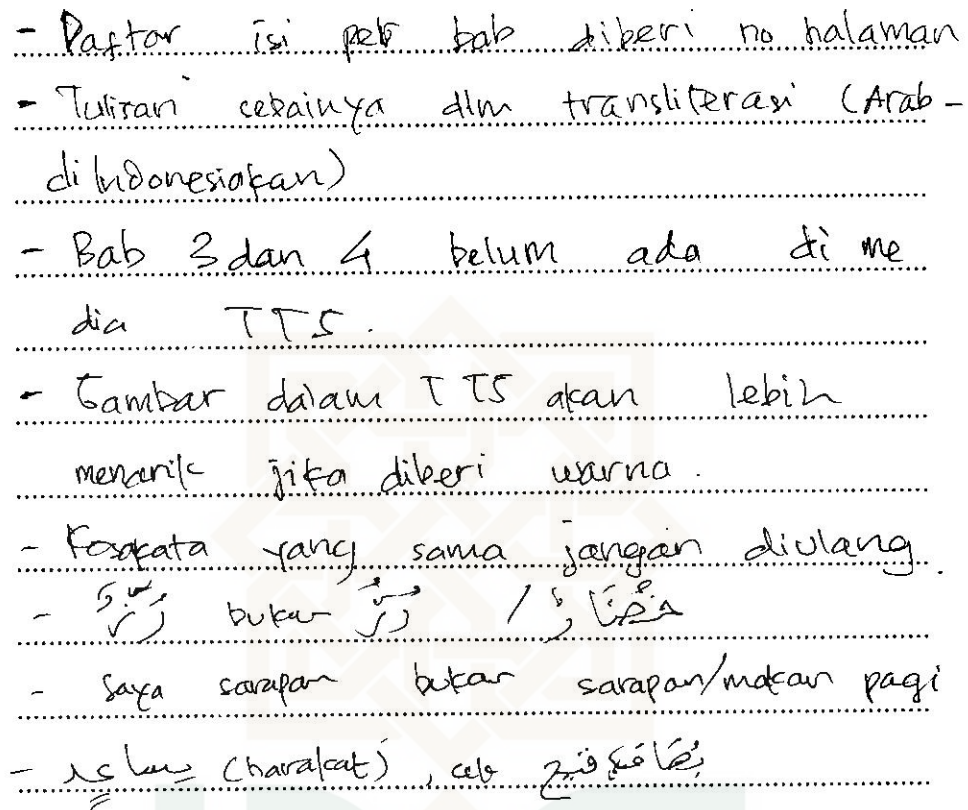 - Daftar isi per bab diberi no halaman
- Tulisan sebainya dlm transliterasi (Arab -
di Indonesiakan)
- Bab 3 dan 4 belum ada di me
dia TTS.
- Gambar dalam TTS akan lebih
menarik jika diberi warna.
- Kosakata yang sama jangan diulang.
- bukan /
- Saya sarapan bukan sarapan/makan pagi
- يساعد (harakat), cek